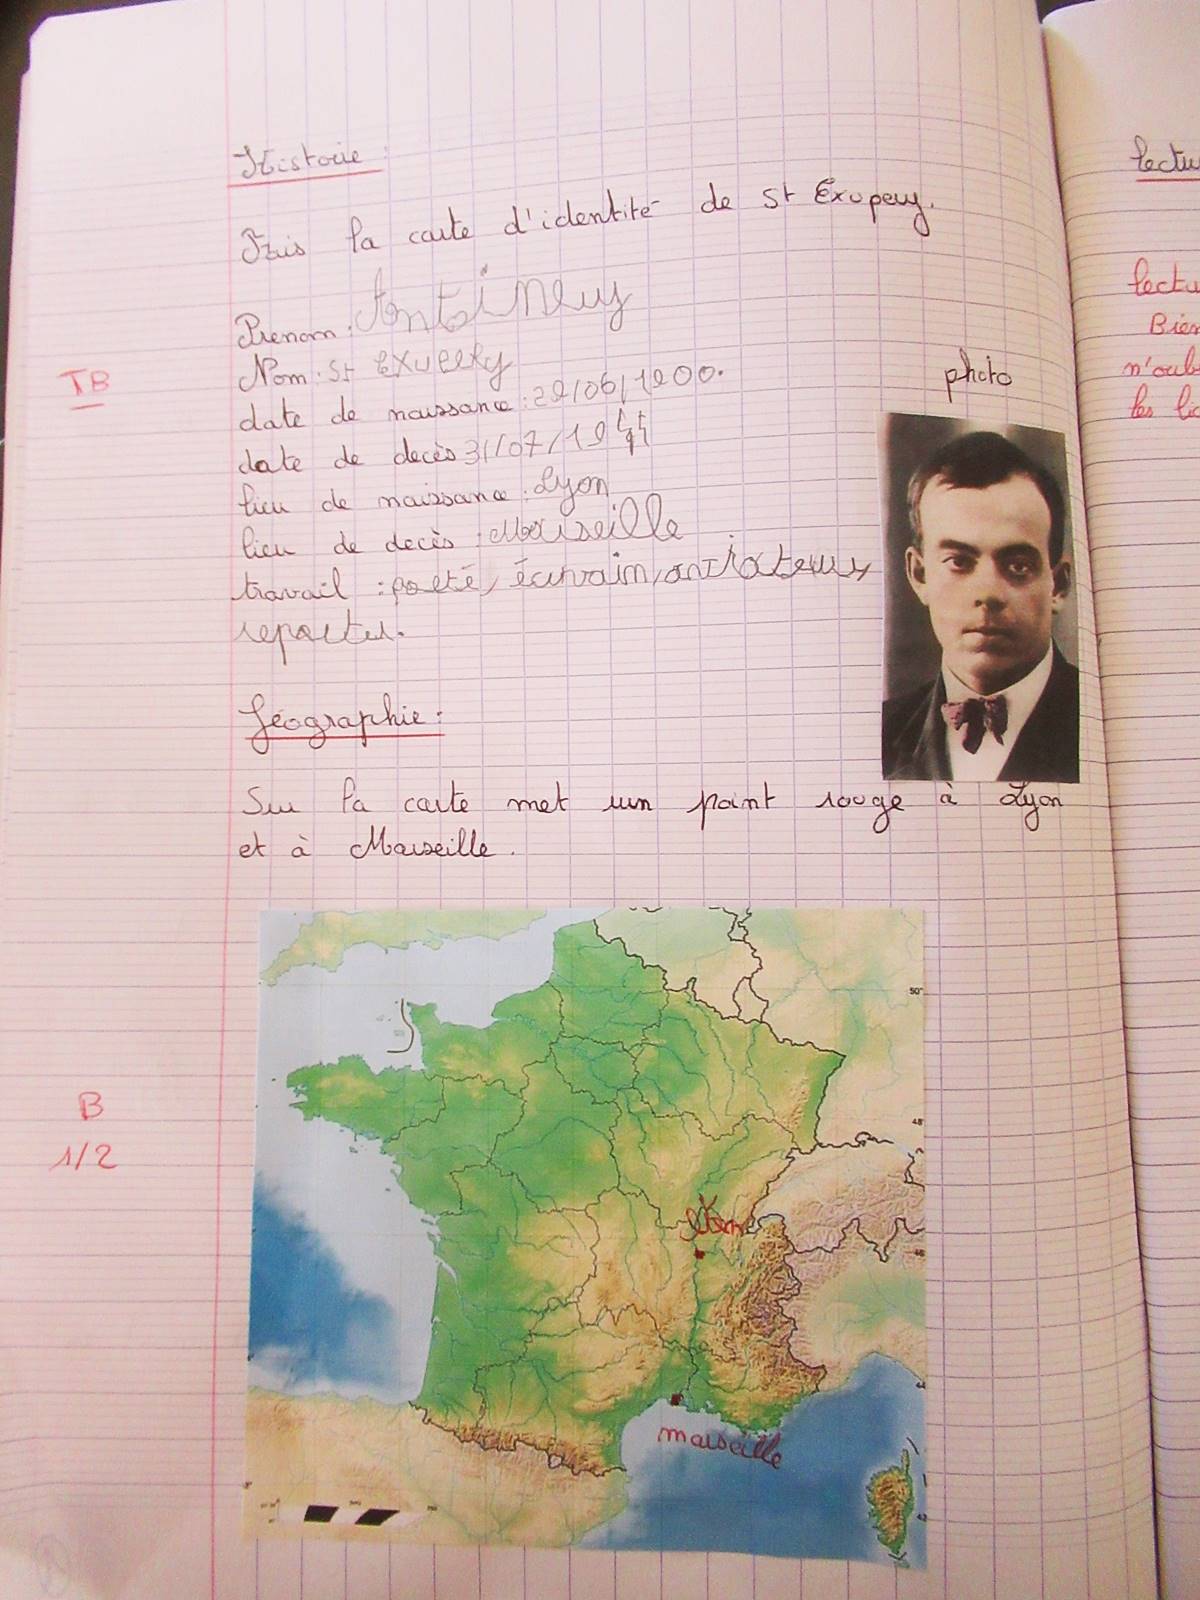 Histoire :
Fais la carte d'identité de St Exupery.
Prenom : Antoineuy
Nom : St Exupery
TB
date de naissance : 29/06/1900.
photo
date de decès 31/07/1944
lieu de naissance : Lyon
lieu de decès : Marseille
travail : poète, écrivain, aviateur,
reporter.
Géographie :
Sur la carte met un point rouge à Lyon
et à Marseille.
50°
B
48°
1/2
Lyon
marseille
lectu
lectu
Bien
n'oub
les li